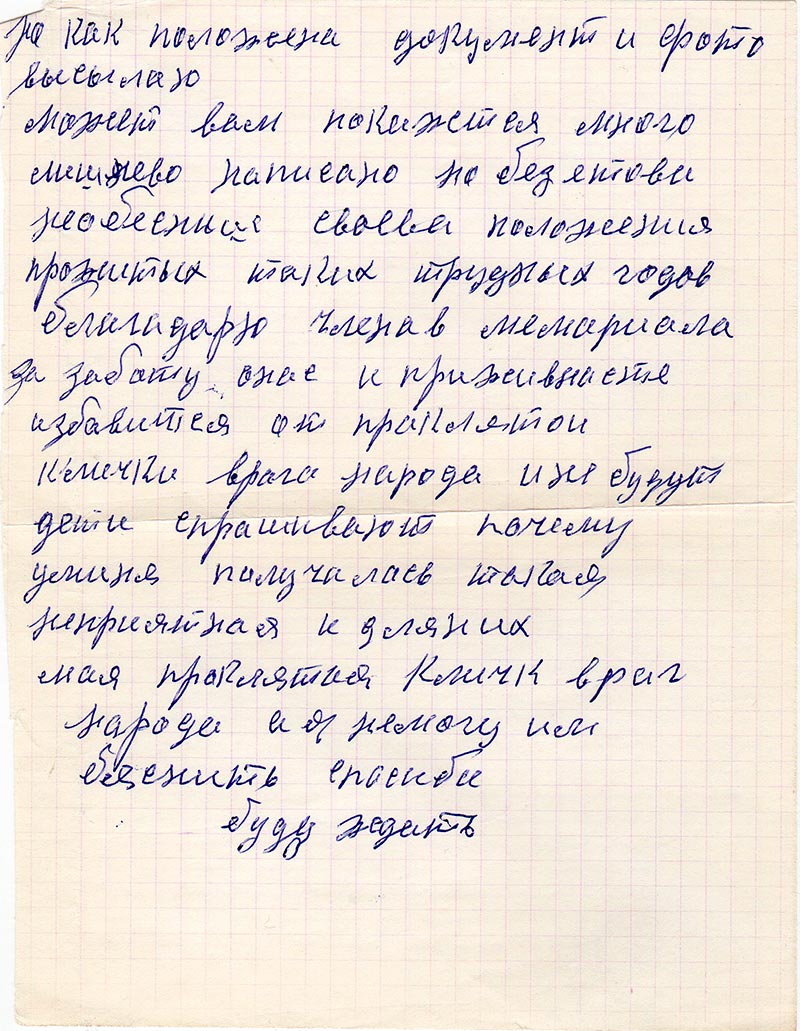 но как положена документ и фото
высылаю
может вам покажется много
лишнево написано но без етови
необесниш своева положения
прожитых таких трудных годов
благадарю членав мемариала
за заботу онас и приживнасте
избавится от праклятои
клички врага народа и не будут
дети спрашивают почему
уминя палучалась такая
неприятная и дляних
мая праклятая кличк враг
народа а я немогу им
бяснить спасиба
буду ждать